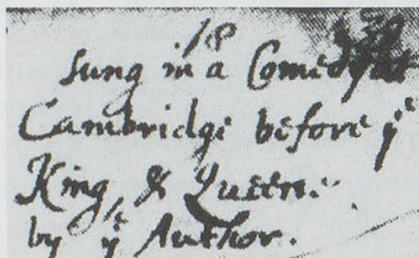 18
sung in a Comedy at
Cambridge before yᵉ
King, & Queene.
by yᵉ Author.